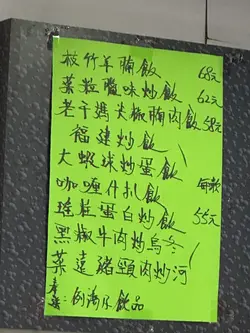 枝竹羊腩飯 68元
菜粒臘味炒飯 62元
老干媽尖椒腩肉飯 58元
福建炒飯
大蝦球炒蛋飯
咖喱什扒飯 每款
瑤柱蛋白炒飯 55元
黑椒牛肉炒烏冬
菜遠豬頸肉炒河
例湯 飲品